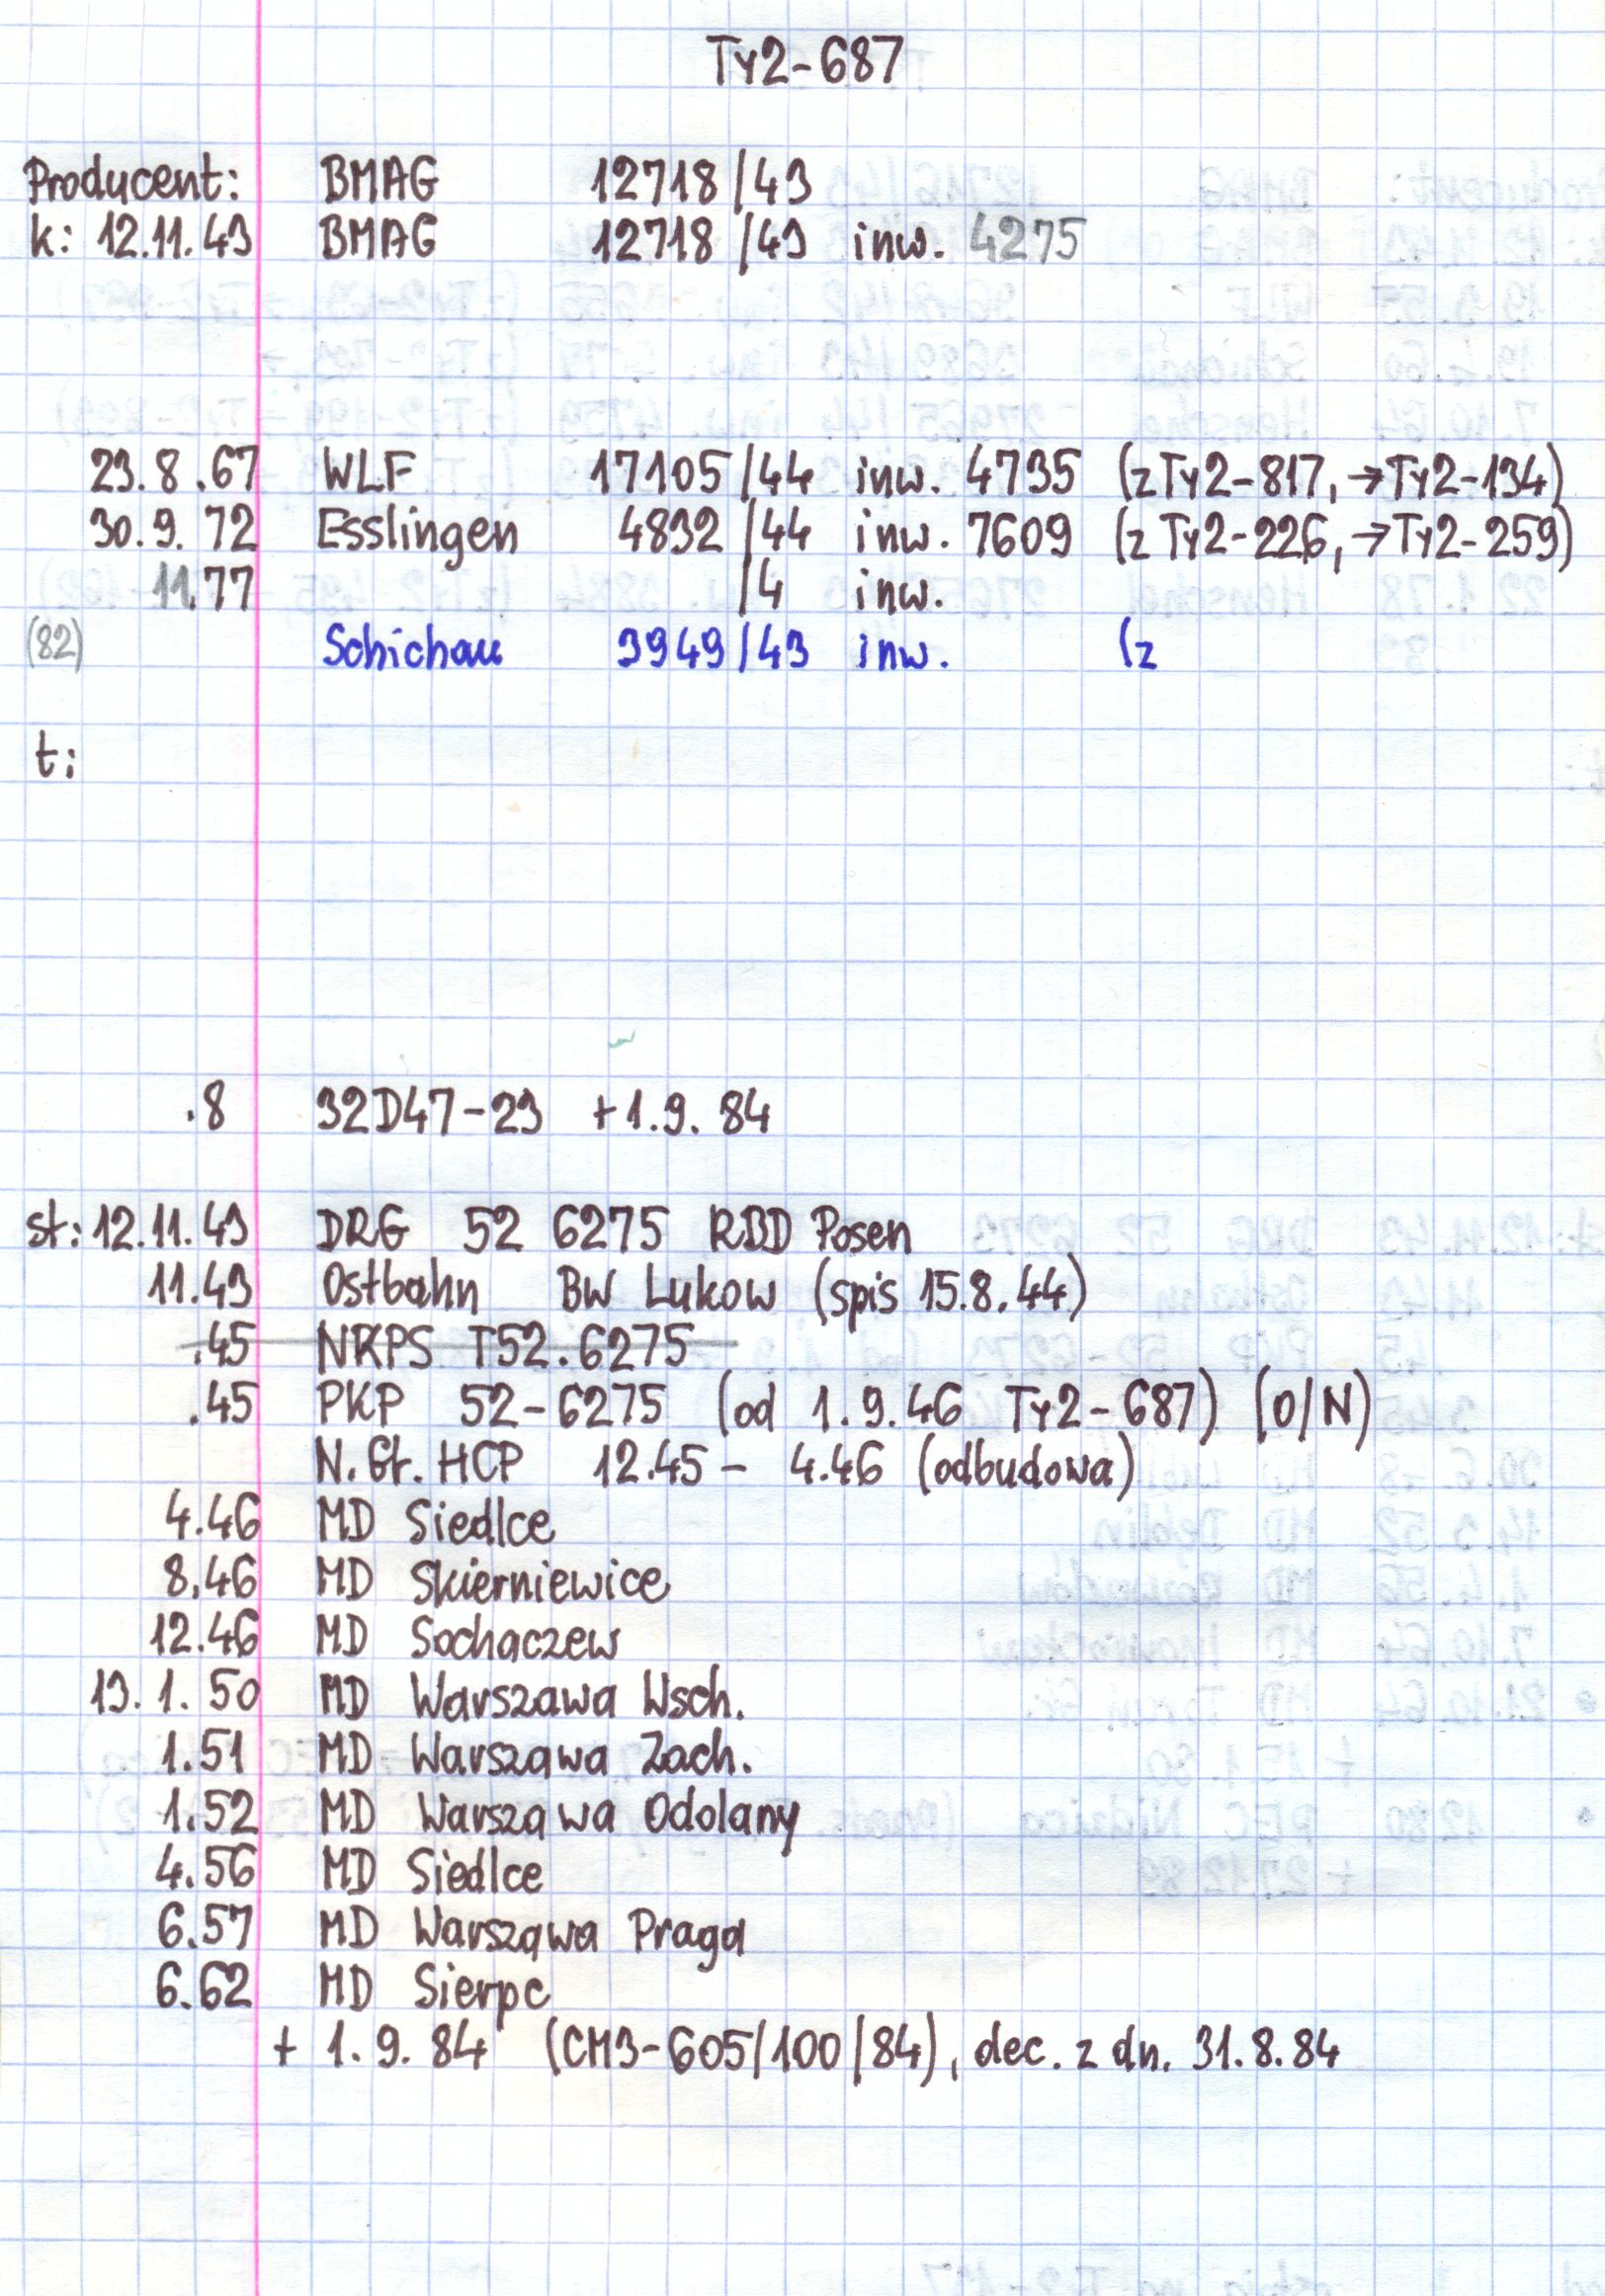 Ty2-687
Producent: BMAG 12718/43
k: 12.11.43 BMAG 12718/43 inw. 4275
23.8.67 WLF 17105/44 inw. 4735 (z Ty2-817, →Ty2-134)
30.9.72 Esslingen 4832/44 inw. 7609 (z Ty2-226, →Ty2-259)
11.77 /4 inw.
(82) Schichau 3949/43 inw. (z
t:
.8 32D47-23 +1.9.84
st: 12.11.43 DRG 52 6275 RBD Posen
11.43 Ostbahn BW Lukow (spis 15.8.44)
.45 NKPS T52.6275
.45 PKP 52-6275 (od 1.9.46 Ty2-687) (O/N)
N.Gł. HCP 12.45 - 4.46 (odbudowa)
4.46 MD Siedlce
8.46 MD Skierniewice
12.46 MD Sochaczew
13.1.50 MD Warszawa Wsch.
1.51 MD Warszawa Zach.
1.52 MD Warszawa Odolany
4.56 MD Siedlce
6.57 MD Warszawa Praga
6.62 MD Sierpc
+ 1.9.84 (CM3-605/100/84), dec. z dn. 31.8.84